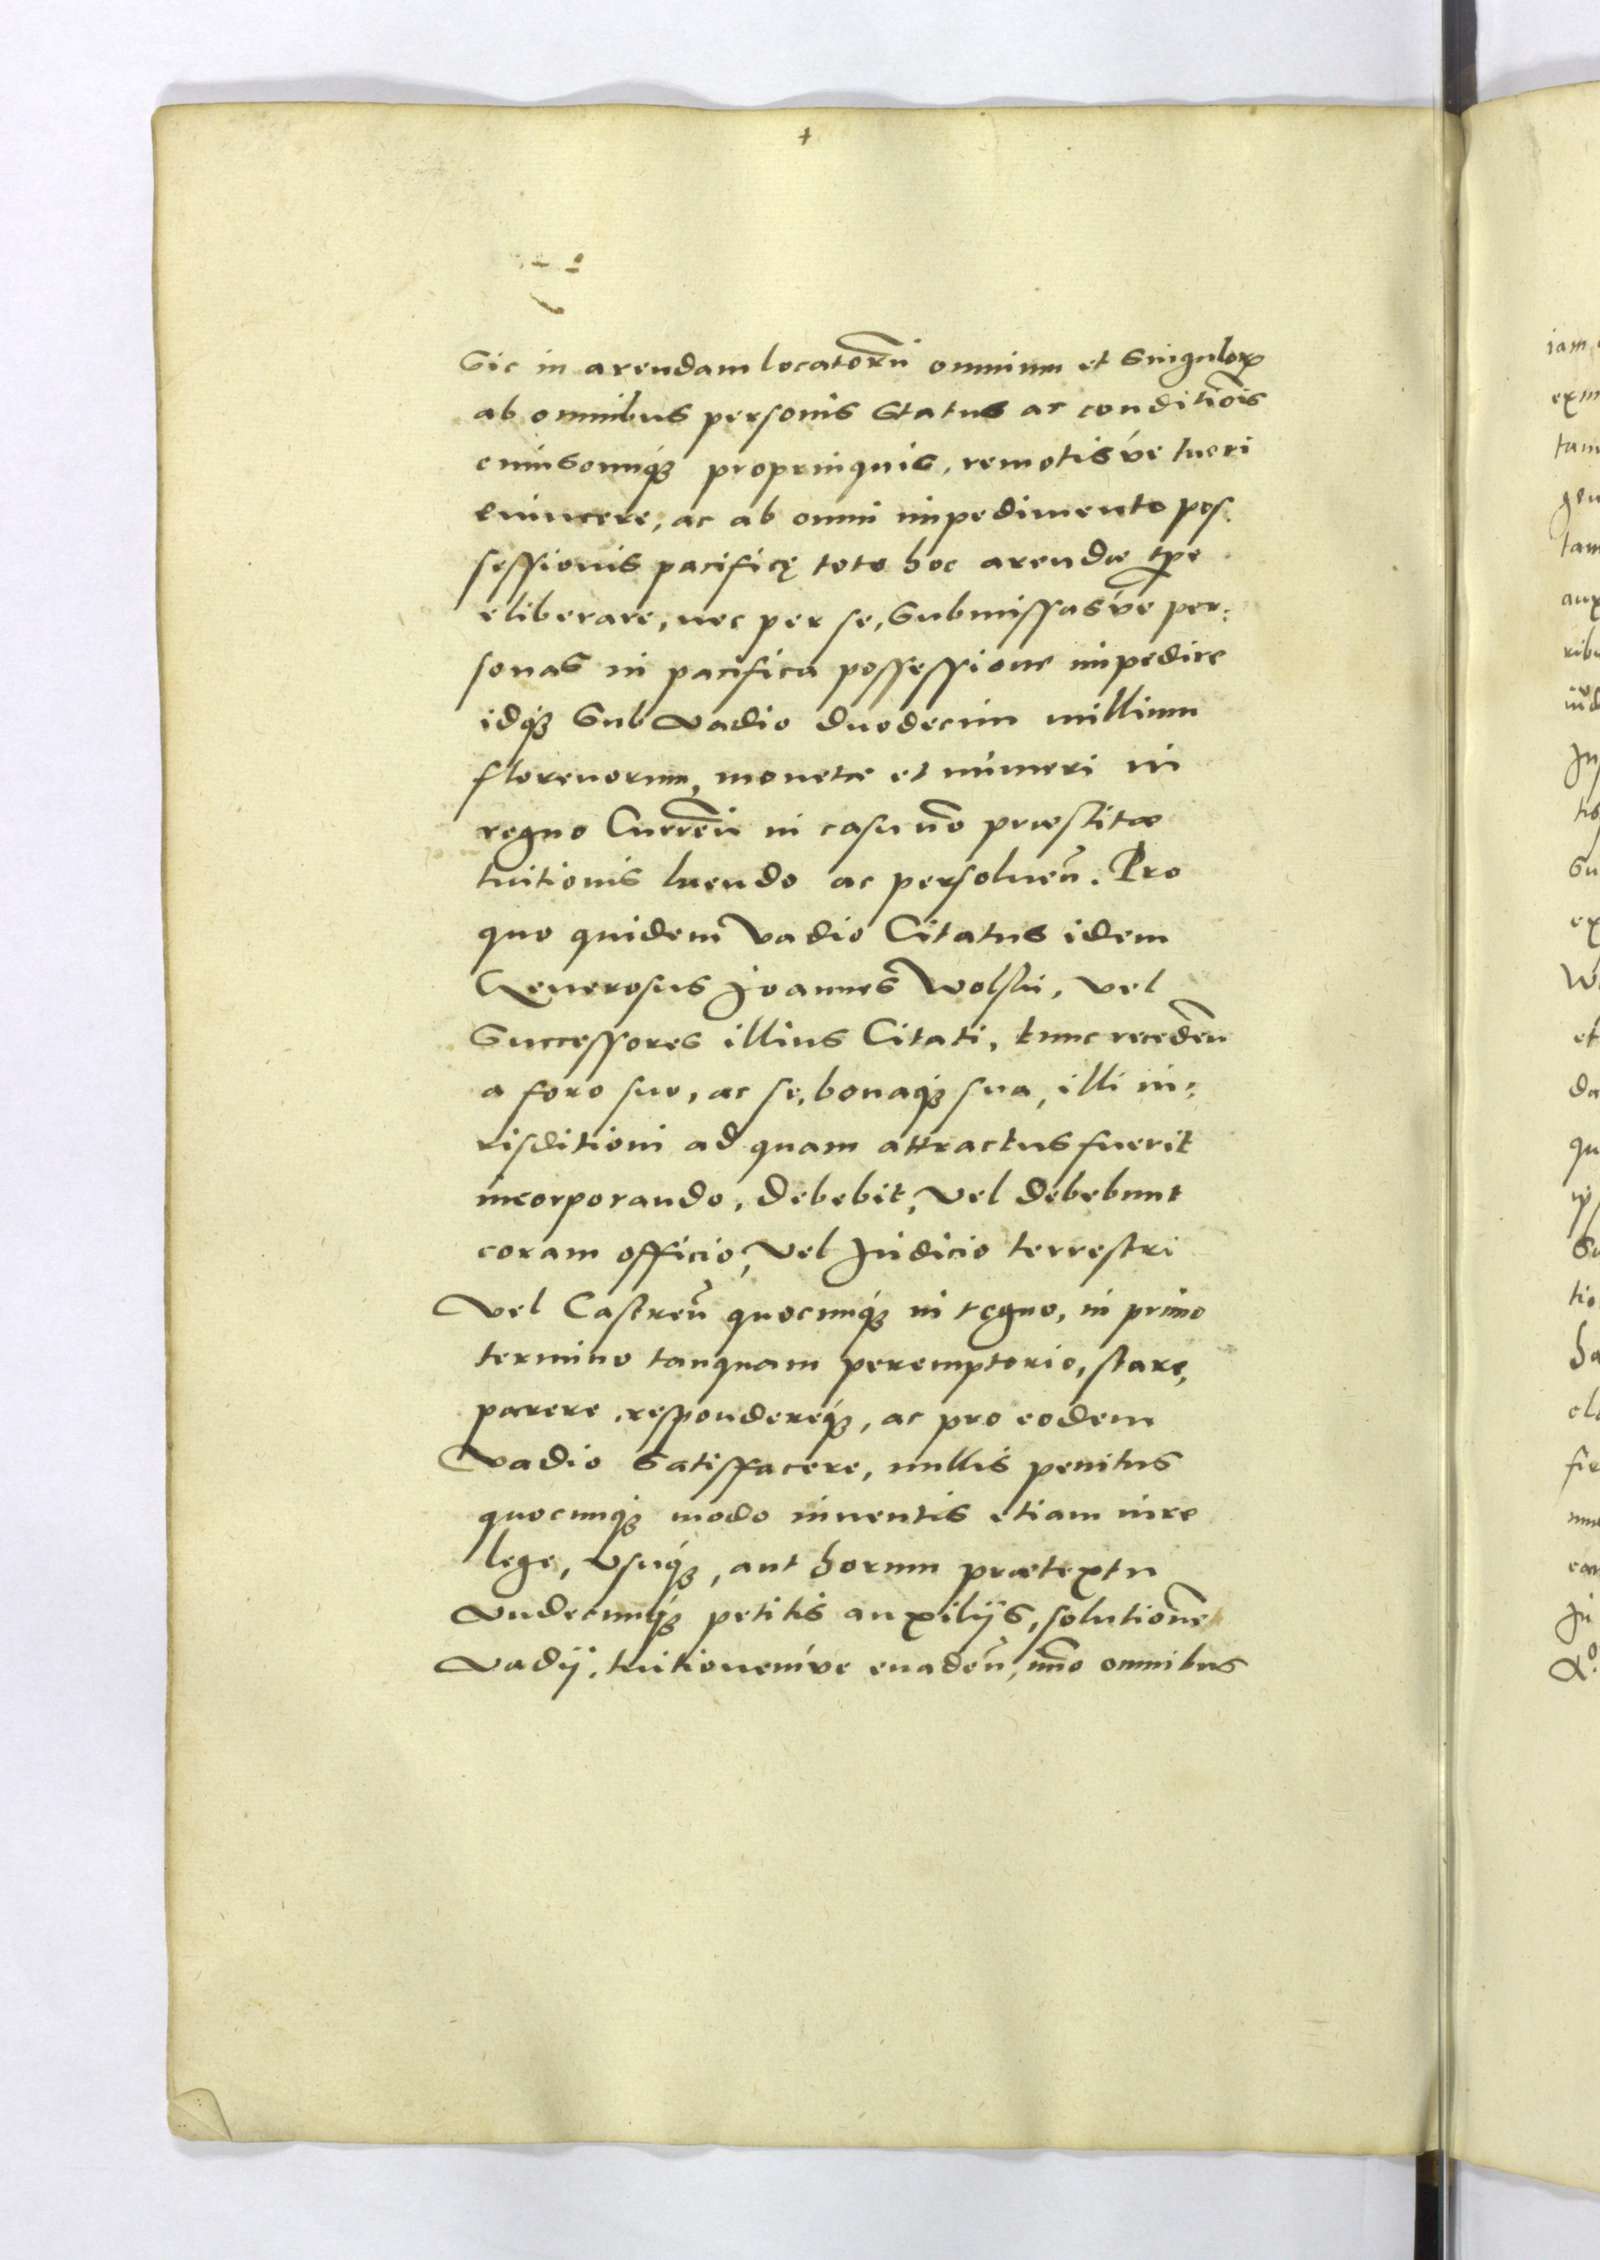 Sic in arendam locatorū omnium et singulorꝝ
ab omnibus personis status ac conditiōis
cuiuscunqꝫ propinquis, remotisve tueri
evincere, ac ab omni impedimento pos:
sessionis pacificę toto hoc arendæ tp̄e
eliberare, nec per se, submissasve per:
sonas in pacifica possessione impedire
idqꝫ sub vadio duodecim millium
florenorum, monetæ et numeri in
regno Currēn̄ in casu nō præstitæ
tuitionis luendo ac persoluen̄. Pro
quo quidem vadio Citatus idem
Generosus Joannes Wolski, vel
Successores illius Citati, tunc recedēn
a foro suo, ac se, bonaqꝫ sua, illi iu:
risditioni ad quam attractus fuerit
incorporando, debebit, vel debebunt
coram officio, vel Judicio terrestri
vel Castren̄ quocunqꝫ in regno, in primo
termino tanquam peremptorio, stare,
parere, respondereqꝫ, ac pro eodem
vadio satisfacere, nullis penitus
quocunqꝫ modo inuentis etiam iure
lege, vsuqꝫ, aut horum prætextu
vndecunqꝫ petitis auxilijs, solutionē
vadij, tuitionemve euaden̄, īmo omnibus